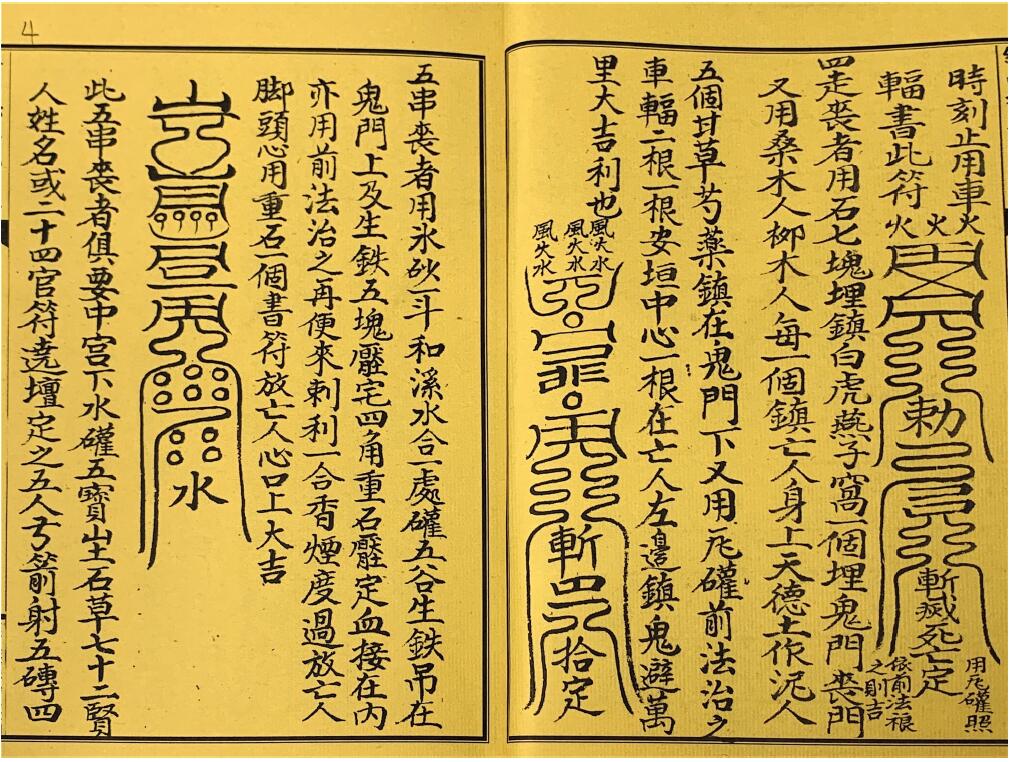 時刻止用車
輻書此符
火火火
勅
斬滅死亡定
用瓦礶照
依前法禳
之則吉
四走喪者用石七塊埋鎮白虎燕子窩一個埋鬼門喪門
又用桑木人柳木人每一個鎮亡人身上天德土作泥人
五個甘草芍藥鎮在鬼門下又用瓦礶前法治之
車輻二根一根安垣中心一根在亡人左邊鎮鬼避萬
里大吉利也
風火水
風火水
風火水
斬
拾定
五串喪者用氷砂一斗和溪水合一處礶五谷生鉄吊在
鬼門上及生鉄五塊壓宅四角重石壓定血接在內
亦用前法治之再便來刺利一合香煙度過放亡人
脚頭心用重石一個書符放亡人心口上大吉
水
此五串喪者俱要中宮下水礶五寶山土石草七十二賢
人姓名或二十四官符遶壇定之五人弓箭射五磚四
4